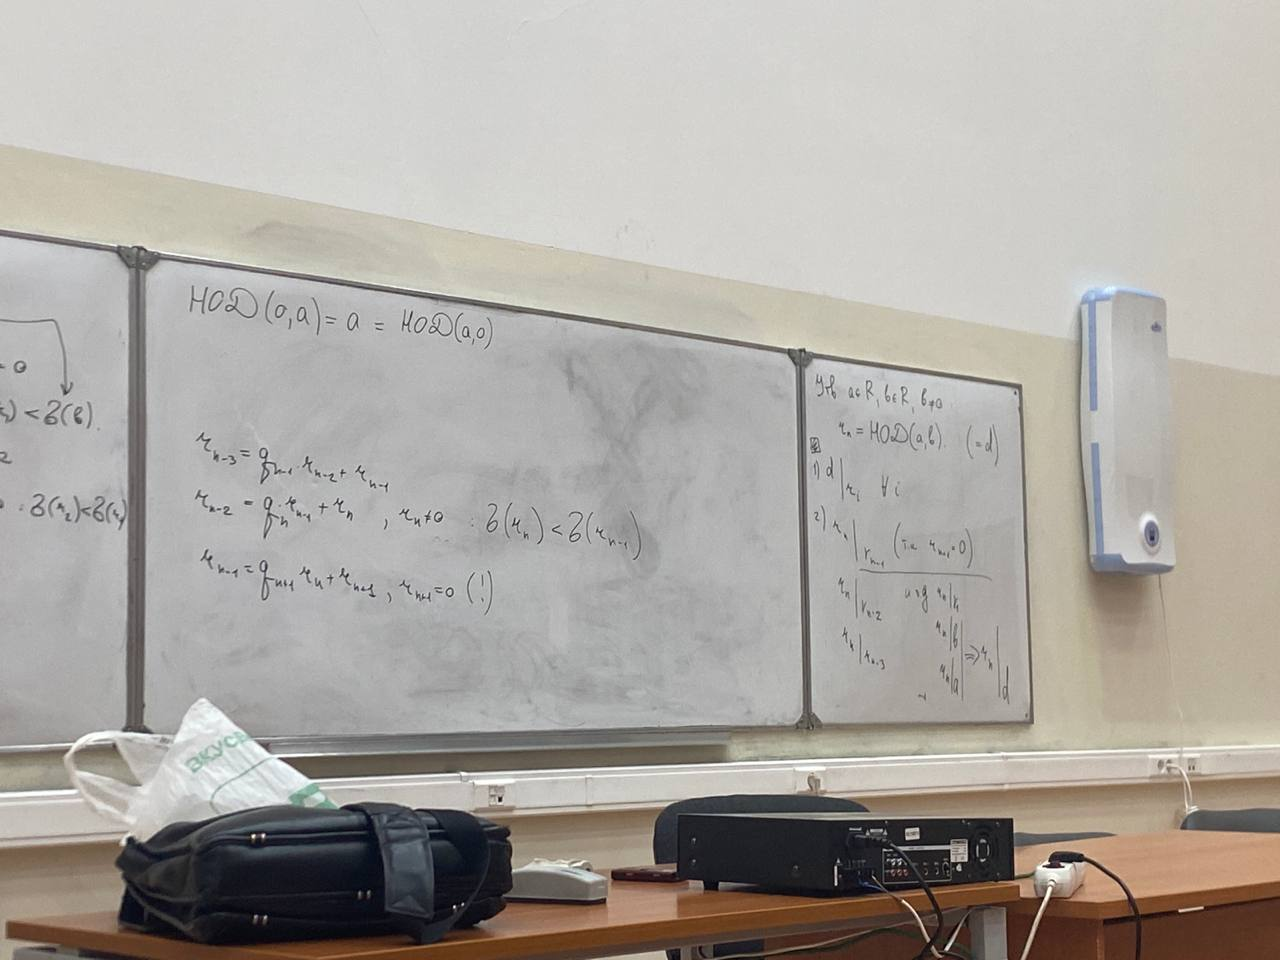 = 0
) < δ(b).
2
: δ(r₂) < δ(r₁)
НОД(0,a) = a = НОД(a,0)
rₙ₋₃ = qₙ₋₁·rₙ₋₂ + rₙ₋₁
rₙ₋₂ = qₙ·rₙ₋₁ + rₙ , rₙ ≠ 0 : δ(rₙ) < δ(rₙ₋₁)
rₙ₋₁ = qₙ₊₁ rₙ + rₙ₊₁ , rₙ₊₁ = 0 (!)
Утв a∈R, b∈R, b≠0.
rₙ = НОД(a,b). (=d)
1) d | rᵢ ∀ i
2) rₙ | rₙ₋₁ (т.к. rₙ₊₁ = 0)
rₙ | rₙ₋₂ и т.д. rₙ | r₁
rₙ | rₙ₋₃ rₙ | b
rₙ | a ⇒ rₙ | d
ВКУС